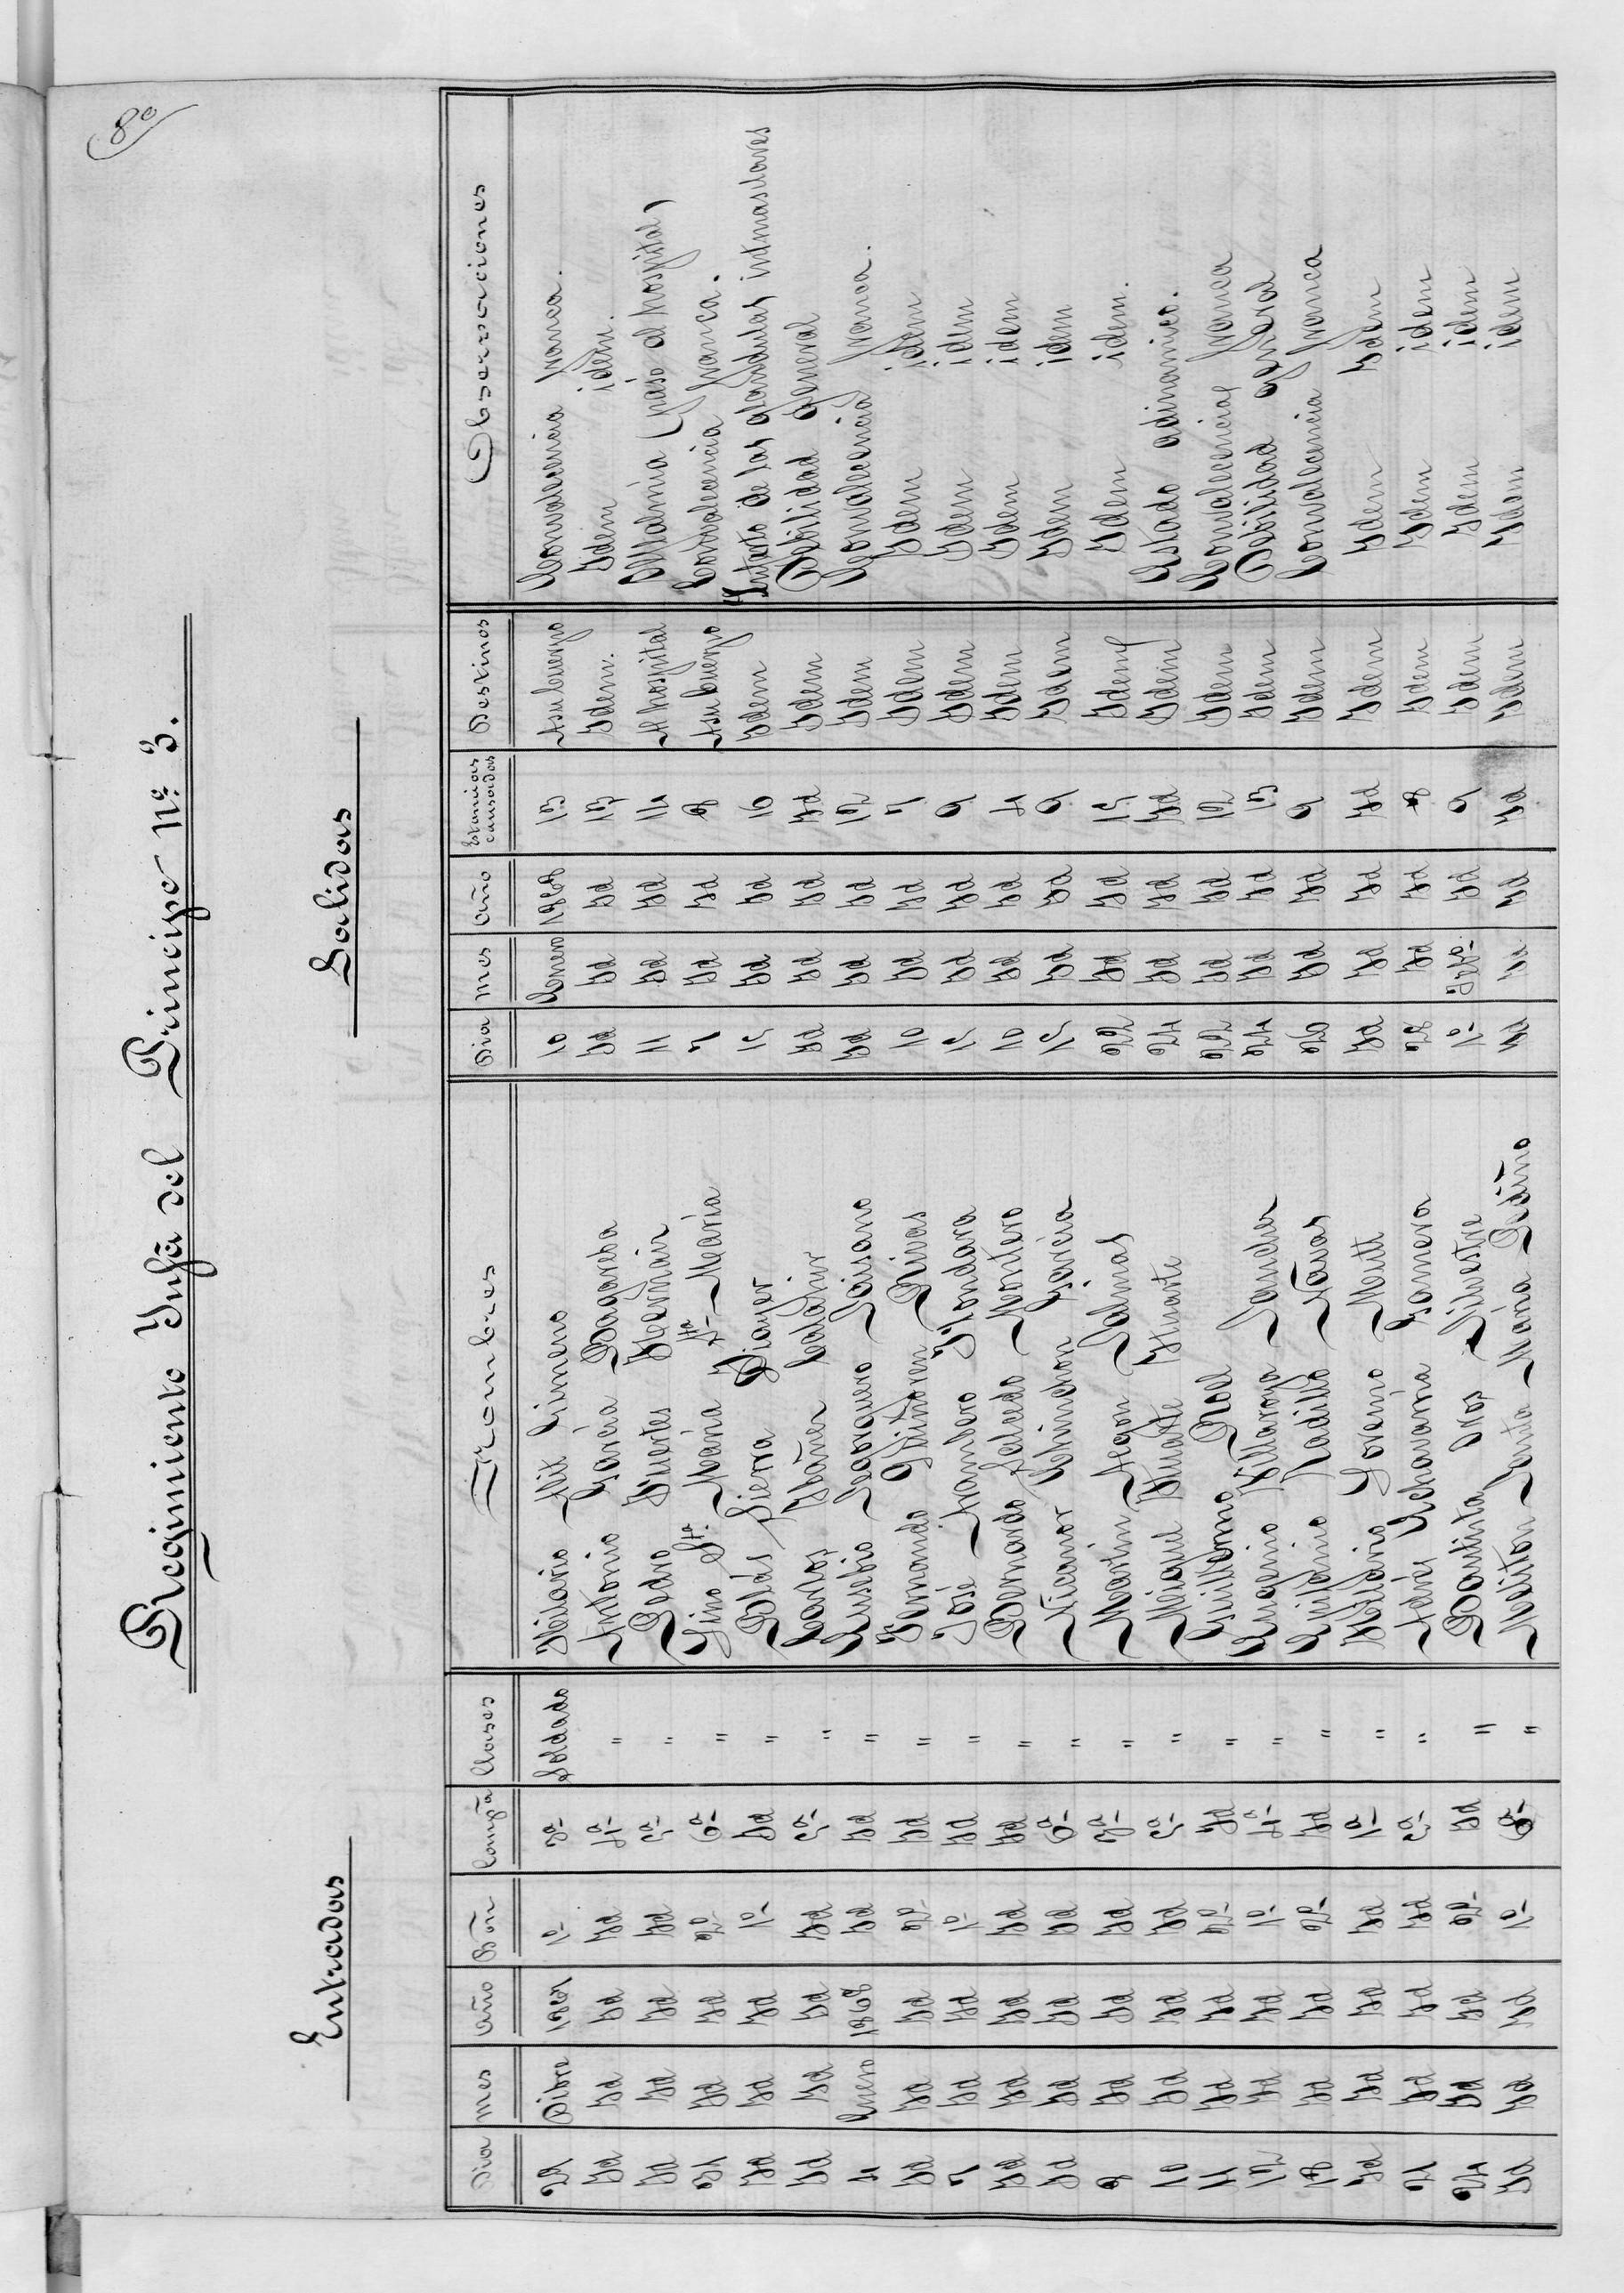 8º
Regimiento Ynfª del Principe nº 3.
Entradas Salidas
Dia mes año Bon Compª Clases Nombres Dia mes año Estancias causadas Destinos Observaciones
29 Dibre 1867 1º 3ª Soldado Hilario Gimeno 10 Enero 1868 13 A su Cuerpo Convalecencia franca.
Id Id Id Id 4ª " Antonio Garcia Id Id Id 13 Idem. Idem idem.
Id Id Id Id 5ª " Pedro Fuertes 11 Id Id 14 Al hospital Oftalmia (pasó al hospital)
31 Id Id 2º 6ª " Lino Sta. Maria Sta. Maria 7 Id Id 8 A su Cuerpo Convalecencia franca.
Id Id Id 1º Id " Blas Sierra Giawer 15 Id Id 16 Idem Infarto de las glandulas intmaslares
Id Id Id Id 5ª " Carlos Ybañez Id Id Id Id Idem Debilidad general
4 Enero 1868 Id Id " Eusebio Id Id Id 12 Idem Convalecencia franca.
Id Id Id 2º Id " Fernando Rivas 10 Id Id 7 Idem Idem idem
7 Id Id 1º Id " José 15 Id Id 9 Idem Idem idem
Id Id Id Id Id " Bernardo Salcedo Montero 10 Id Id 4 Idem Idem idem
Id Id Id Id 6ª " Nicanor Chinchon Garcia 15 Id Id 9 Idem Idem idem
8 Id Id Id 3ª " Martin Aragon Salinas 22 Id Id 15 Idem Idem idem.
10 Id Id Id 5ª " Miguel Huarte Huarte 24 Id Id Id Idem Estado adinamico.
11 Id Id 2º Id " Guillermo Diad 22 Id Id 12 Idem Convalecencia franca
12 Id Id 1º 4ª " Eugenio Villaroya Sanchez 24 Id Id 13 Idem Debilidad general
18 Id Id 2º Id " Quiterio Padilla Navas 26 Id Id 9 Idem Convalecencia franca
Id Id Id Id 1ª " Hilario Loreno Id Id Id Id Idem Idem Idem
21 Id Id Id 5ª " Echavarria 28 Id Id 8 Idem Idem idem
24 Id Id 2º Id " Bautista Oroz Silvestre 1º Febº Id 9 Idem Idem idem
Id Id Id 1º 6ª " Meliton Santa Maria Id Id Id Id Idem Idem idem